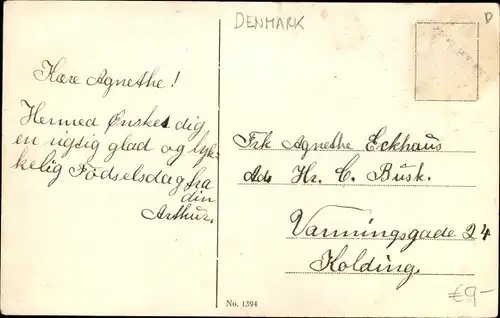 DENMARK
D
Kære Agnethe!
Hermed Ønskes dig
en rigtig glad og lyk-
kelig Födselsdag fra
din
Arthur.
Frk Agnethe Eckhaus
Ads Hr. C. Busk.
Varmingsgade 24
Kolding.
€9-
No. 1394